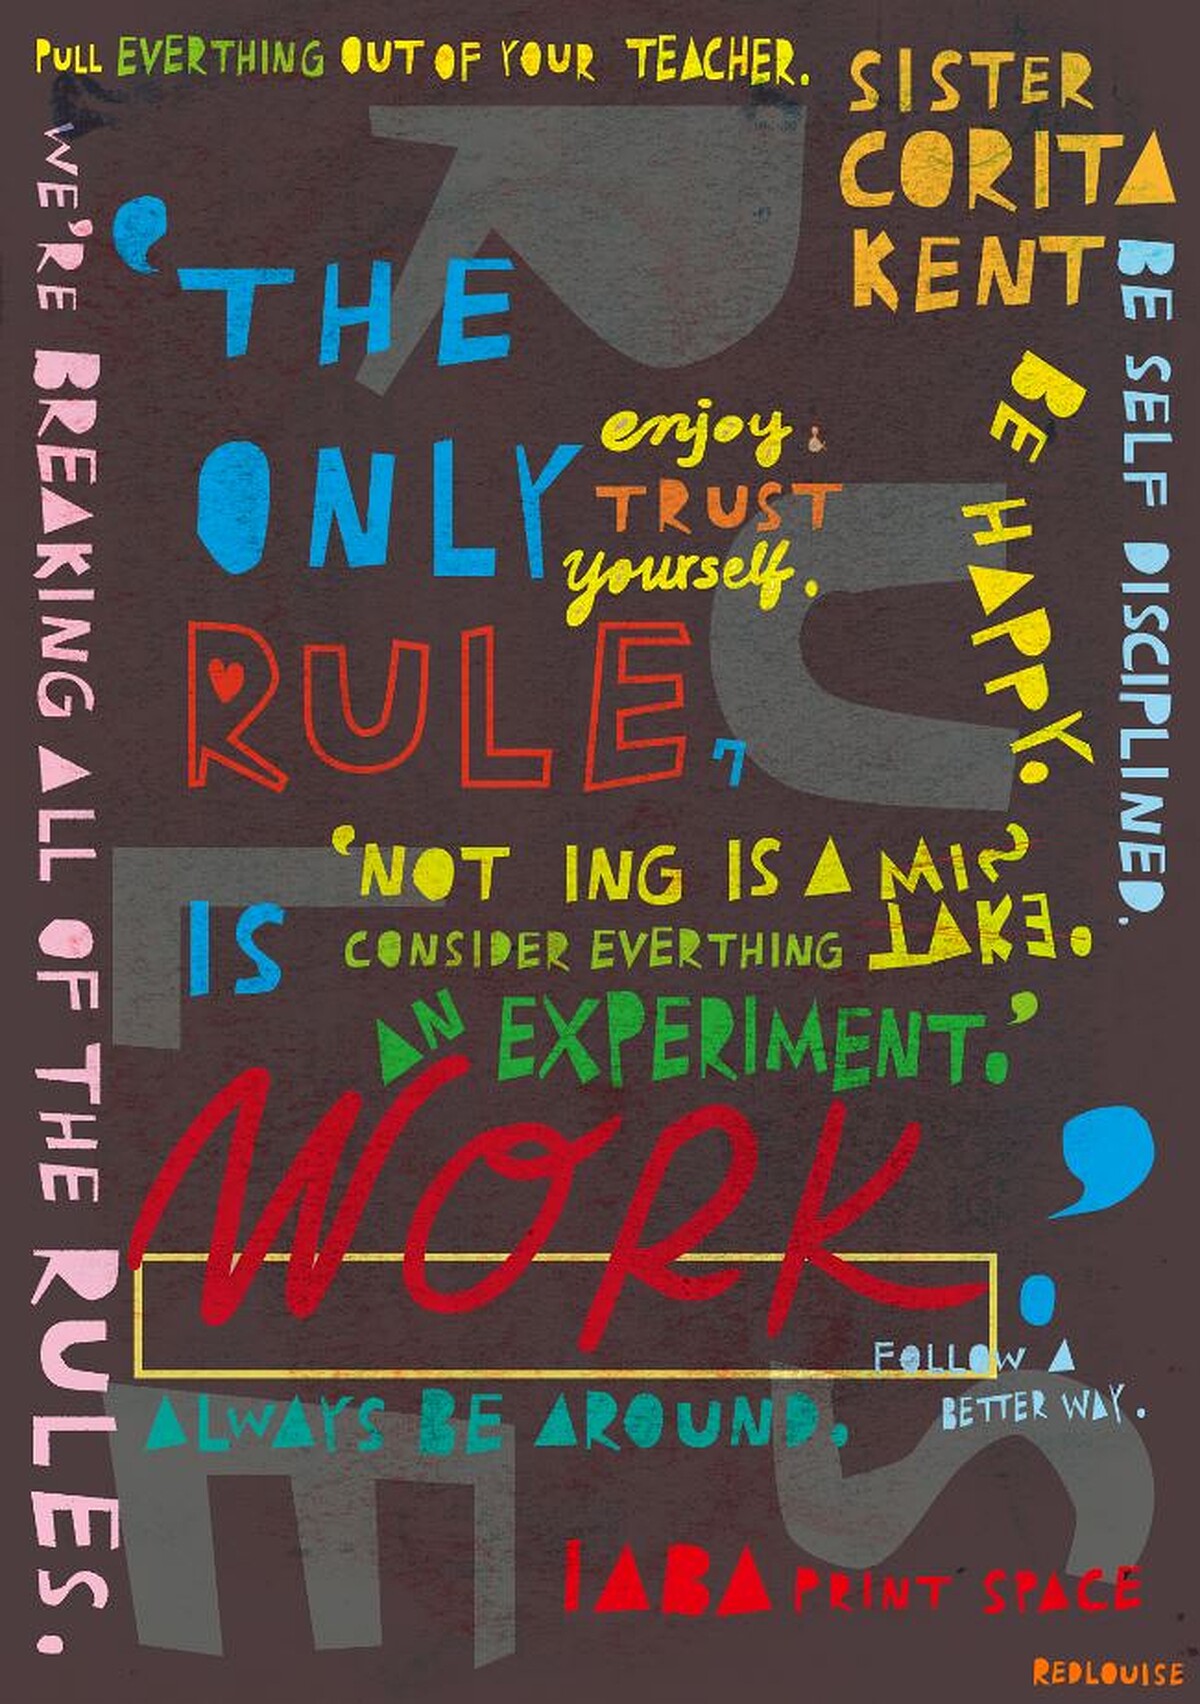 PULL EVERTHING OUT OF YOUR TEACHER.
SISTER
CORITA
KENT
WE'RE BREAKING ALL OF THE RULES.
BE SELF DISCIPLINED.
BE HAPPY.
'THE
ONLY
RULE,
IS
WORK.'
enjoy.
TRUST
yourself.
'NOT ING IS A MIS
TAKE.
CONSIDER EVERTHING
AN EXPERIMENT.'
FOLLOW A
BETTER WAY.
ALWAYS BE AROUND.
IABA PRINT SPACE
REDLOUISE
RULES